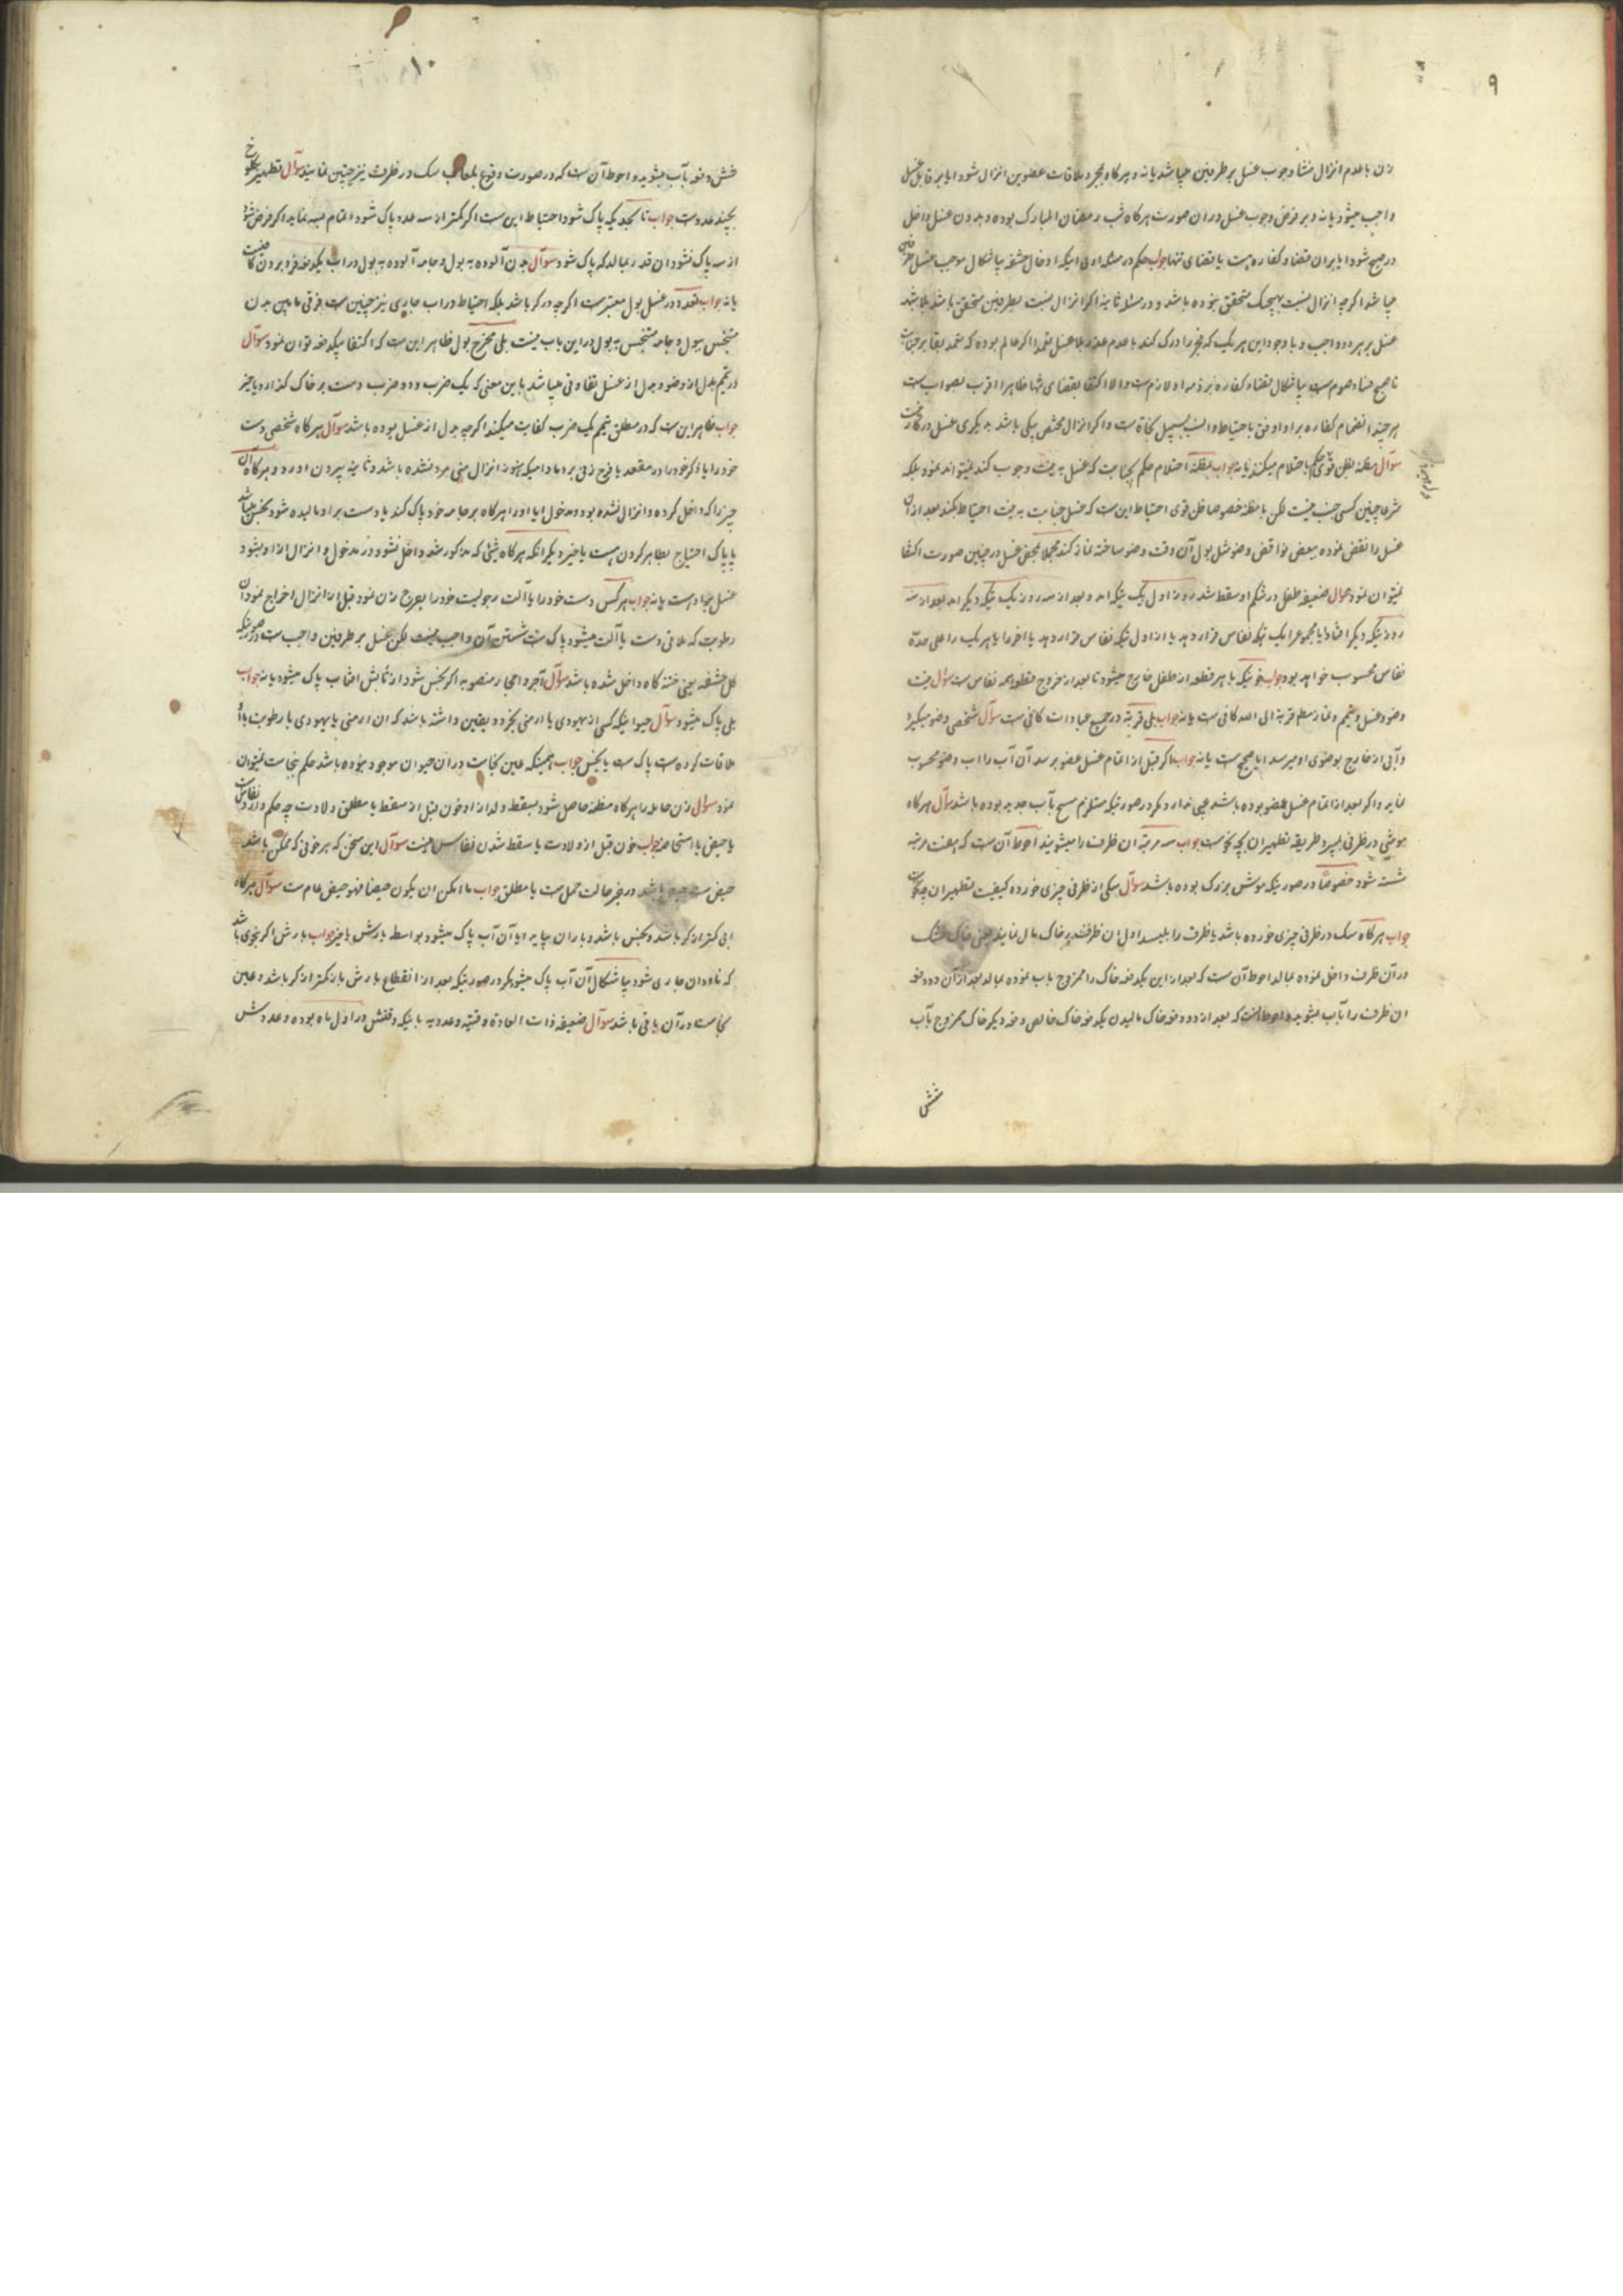 ۹
زن با عدم انزال منشأ وجوب غسل بر طرفین میباشد یا نه و هرگاه بمجرد ملاقات عضوین انزال شود ایا بر قابل غسل
واجب میشود یا نه و بر فرض وجوب غسل در ان صورت هرکاه شب رمضان المبارک بوده و بدون غسل داخل
در صبح شود ایا بر ان قضا و کفاره هست یا قضای تنها جواب حکم در مسئله اولی اینکه ادخال حشفه بیاشکال موجب غسل طرفین
میباشد اکرچه انزال نسبت بهیچیک متحقق نبوده باشد و در مسئله ثانیه اکر انزال نسبت بطرفین متحقق باشد بلاشبهه
غسل بر هر دو واجب و با وجود این هر یک که فجر را درک کند با عدم عذر بلا غسل متعمدا اکر عالم بوده که متعمد بقا بر جنابت
تا صبح ضاد صوم است بیاشکال قضا و کفاره بر ذمه او لازم است و الا اکتفا بقضای تنها ظاهرا اقرب بصواب است
هر چند انضمام کفاره بر او اوفق باحتیاط و انسب بسبیل نجاة است و اکر انزال مختص بیکی باشد بدیکری غسل در کار نیست
سوآل مظنه بظن قوی حکم باحتلام میکند یا نه جواب مظنه احتلام حکم بجنابت که غسل به نیت وجوب کند نمیتواند نمود بلکه
شرعا چنین کسی جنب نیست لکن با مظنه خصوصا ظن قوی احتیاط این است که غسل جنابت به نیت احتیاط بکند بعد از ان
غسل را نقض نموده ببعض نواقض وضو مثل بول آن وقت وضو ساخته نماز کند مجملا بمحض غسل در چنین صورت اکتفا
نمیتوان نمود سوال ضعیفه طفل در شکم او سقط شد روز اول یک تیکه امد و بعد از سه روز یک تیکه دیکر امد بعد از سه
روز تیکه دیکر افتاد ایا مجموع را یک تیکه نفاس قرار دهد یا از اول تیکه نفاس قرار دهد یا اخر را یا هر یک را علی حدّه
نفاس محسوب خواهد بود جواب خونیکه با هر قطعه از طفل خارج میشود تا بعد از خروج قطعه همه نفاس ست سؤال نیت
وضو و غسل و تیمم و نماز مطلق قربة الی الله کافی ست یا نه جواب بلی قربة در جمیع عبادات کافی ست سوآل شخصی وضو میکیرد
و آبی از خارج بوضوی او میرسد ایا صحیح ست یا نه جواب اکر قبل از اتمام غسل عضو برسد آن آب را اب وضو محسوب
نماید و اکر بعد از اتمام غسل عضو بوده باشد عیبی ندارد مکر در صورتیکه مستلزم مسح بآب جدید بوده باشد سوآل هرکاه
موشی در ظرفی بمیرد طریقه تطهیر ان بچه نحو ست جواب سه مرتبه ان ظرف را میشویند احوط آن ست که هفت مرتبه
شسته شود خصوصًا در صورتیکه موش بزرک بوده باشد سوآل سکی از ظرفی چیزی خورده کیفیت تطهیر ان چکونه است
جواب هرکاه سک در ظرفی چیزی خورده باشد یا ظرف را بلیسد اول ان ظرف را بر خاک مال نمایند یعنی خاک خشک
در آن ظرف داخل نموده بمالد احوط آن ست که بعد از این یکدفعه خاک را ممزوج باب نموده بمالد بعد از آن دو دفعه
ان ظرف را بآب بشوید و احوط انست که بعد از دو دفعه خاک مالیدن یکدفعه خاک خالص و دفعه دیکر خاک ممزوج بآب
شش
۱۰
شش دفعه بآب بشوید و احوط آن ست که در صورت وقوع لعاب سک در ظرف نیز چنین نمایند سوآل تطهیر کلوخ
بچند عدد ست جواب تا بحدیکه پاک شود احتیاط این ست اکر کمتر از سه عدد پاک شود اتمام سه نماید اکر فرض شود
از سه پاک نشود ان قدر بمالد که پاک شود سوآل بدن آلوده به بول و جامه آلوده به بول در اب یکدفعه فرو بردن کافیست
یا نه جواب تعدد در غسل بول معتبر ست اکرچه در کر باشد بلکه احتیاط در اب جاری نیز چنین ست فرقی مابین بدن
متنجس ببول و جامه متنجس به بول در این باب نیست بلی مخرج بول ظاهر این ست که اکتفا بیکدفعه توان نمود سوآل
در تیمم بدل از وضو و بدل از غسل تفاوتی میباشد باین معنی که یک ضرب و دو ضرب دست بر خاک کذارد یا چیز
جواب ظاهر این ست که در مطلق تیمم یک ضرب کفایت میکند اکرچه بدل از غسل بوده باشد سوآل هرکاه شخصی دست
خود را یا ذکر خود را در مقعد یا فرج زنی برد مادامیکه هنوز انزال منی مرد نشده باشد و ثانیه بیرون اورد و هرکاه ان
چیز را که داخل کرده و انزال نشده بود و مدخول ایا او را هرکاه بر جامه خود پاک کند یا دست بر او مالیده شود نجس میباشد
یا پاک احتیاج بطاهر کردن هست یا خیر دیکر انکه هرکاه شیئی که مذکور شد داخل نشود در مدخول و انزال از او بشود
غسل بر او هست یا نه جواب هر کس دست خود را یا آلت رجولیت خود را بفرج زن نمود قبل از انزال اخراج نمود ان
رطوبت که ملاقی دست یا آلت میشود پاک ست شستن آن واجب نیست لکن غسل بر طرفین واجب ست در صورتیکه
کل حشفه یعنی ختنه کاه داخل شده باشد سوآل آجر و احجار منصوبه اکر نجس شود از تابش افتاب پاک میشود یا نه جواب
بلی پاک میشود سوآل حیوانیکه کسی از یهودی یا ارمنی بخرد و یقین داشته باشد که ان ارمنی یا یهودی با رطوبت با او
ملاقات کرده ست پاک ست یا نجس جواب همینکه عین نجاست در ان حیوان موجود نبوده باشد حکم بنجاست نمیتوان
نمود سؤال زن حامله را هرکاه مظنه حاصل شود بسقط ولد از او خون قبل از سقط یا مطلق ولادت چه حکم دارد نفاس ست
یا حیض یا استحاضه جواب خون قبل از ولادت یا سقط شدن نفاس نیست سوآل این سخن که هر خونی که ممکن باشد
حیض ست حیض باشد در غیر حالت حمل ست یا مطلق جواب ما امکن ان یکون حیضا فهو حیض عام ست سوآل هرکاه
ابی کمتر از کر باشد و نجس باشد و باران بیاید ایا آن آب پاک میشود بواسطه بارش یا خیر جواب بارش اکر بنحوی باشد
که ناودان جاری شود بیاشکال آن آب پاک میشود مکر در صورتیکه بعد از انقطاع بارش باز کمتر از کر باشد و عین
نجاست در آن باقی باشد سوآل ضعیفه ذات العادة وقتیه و عددیه باینکه وقتش در اول ماه بوده و عددش